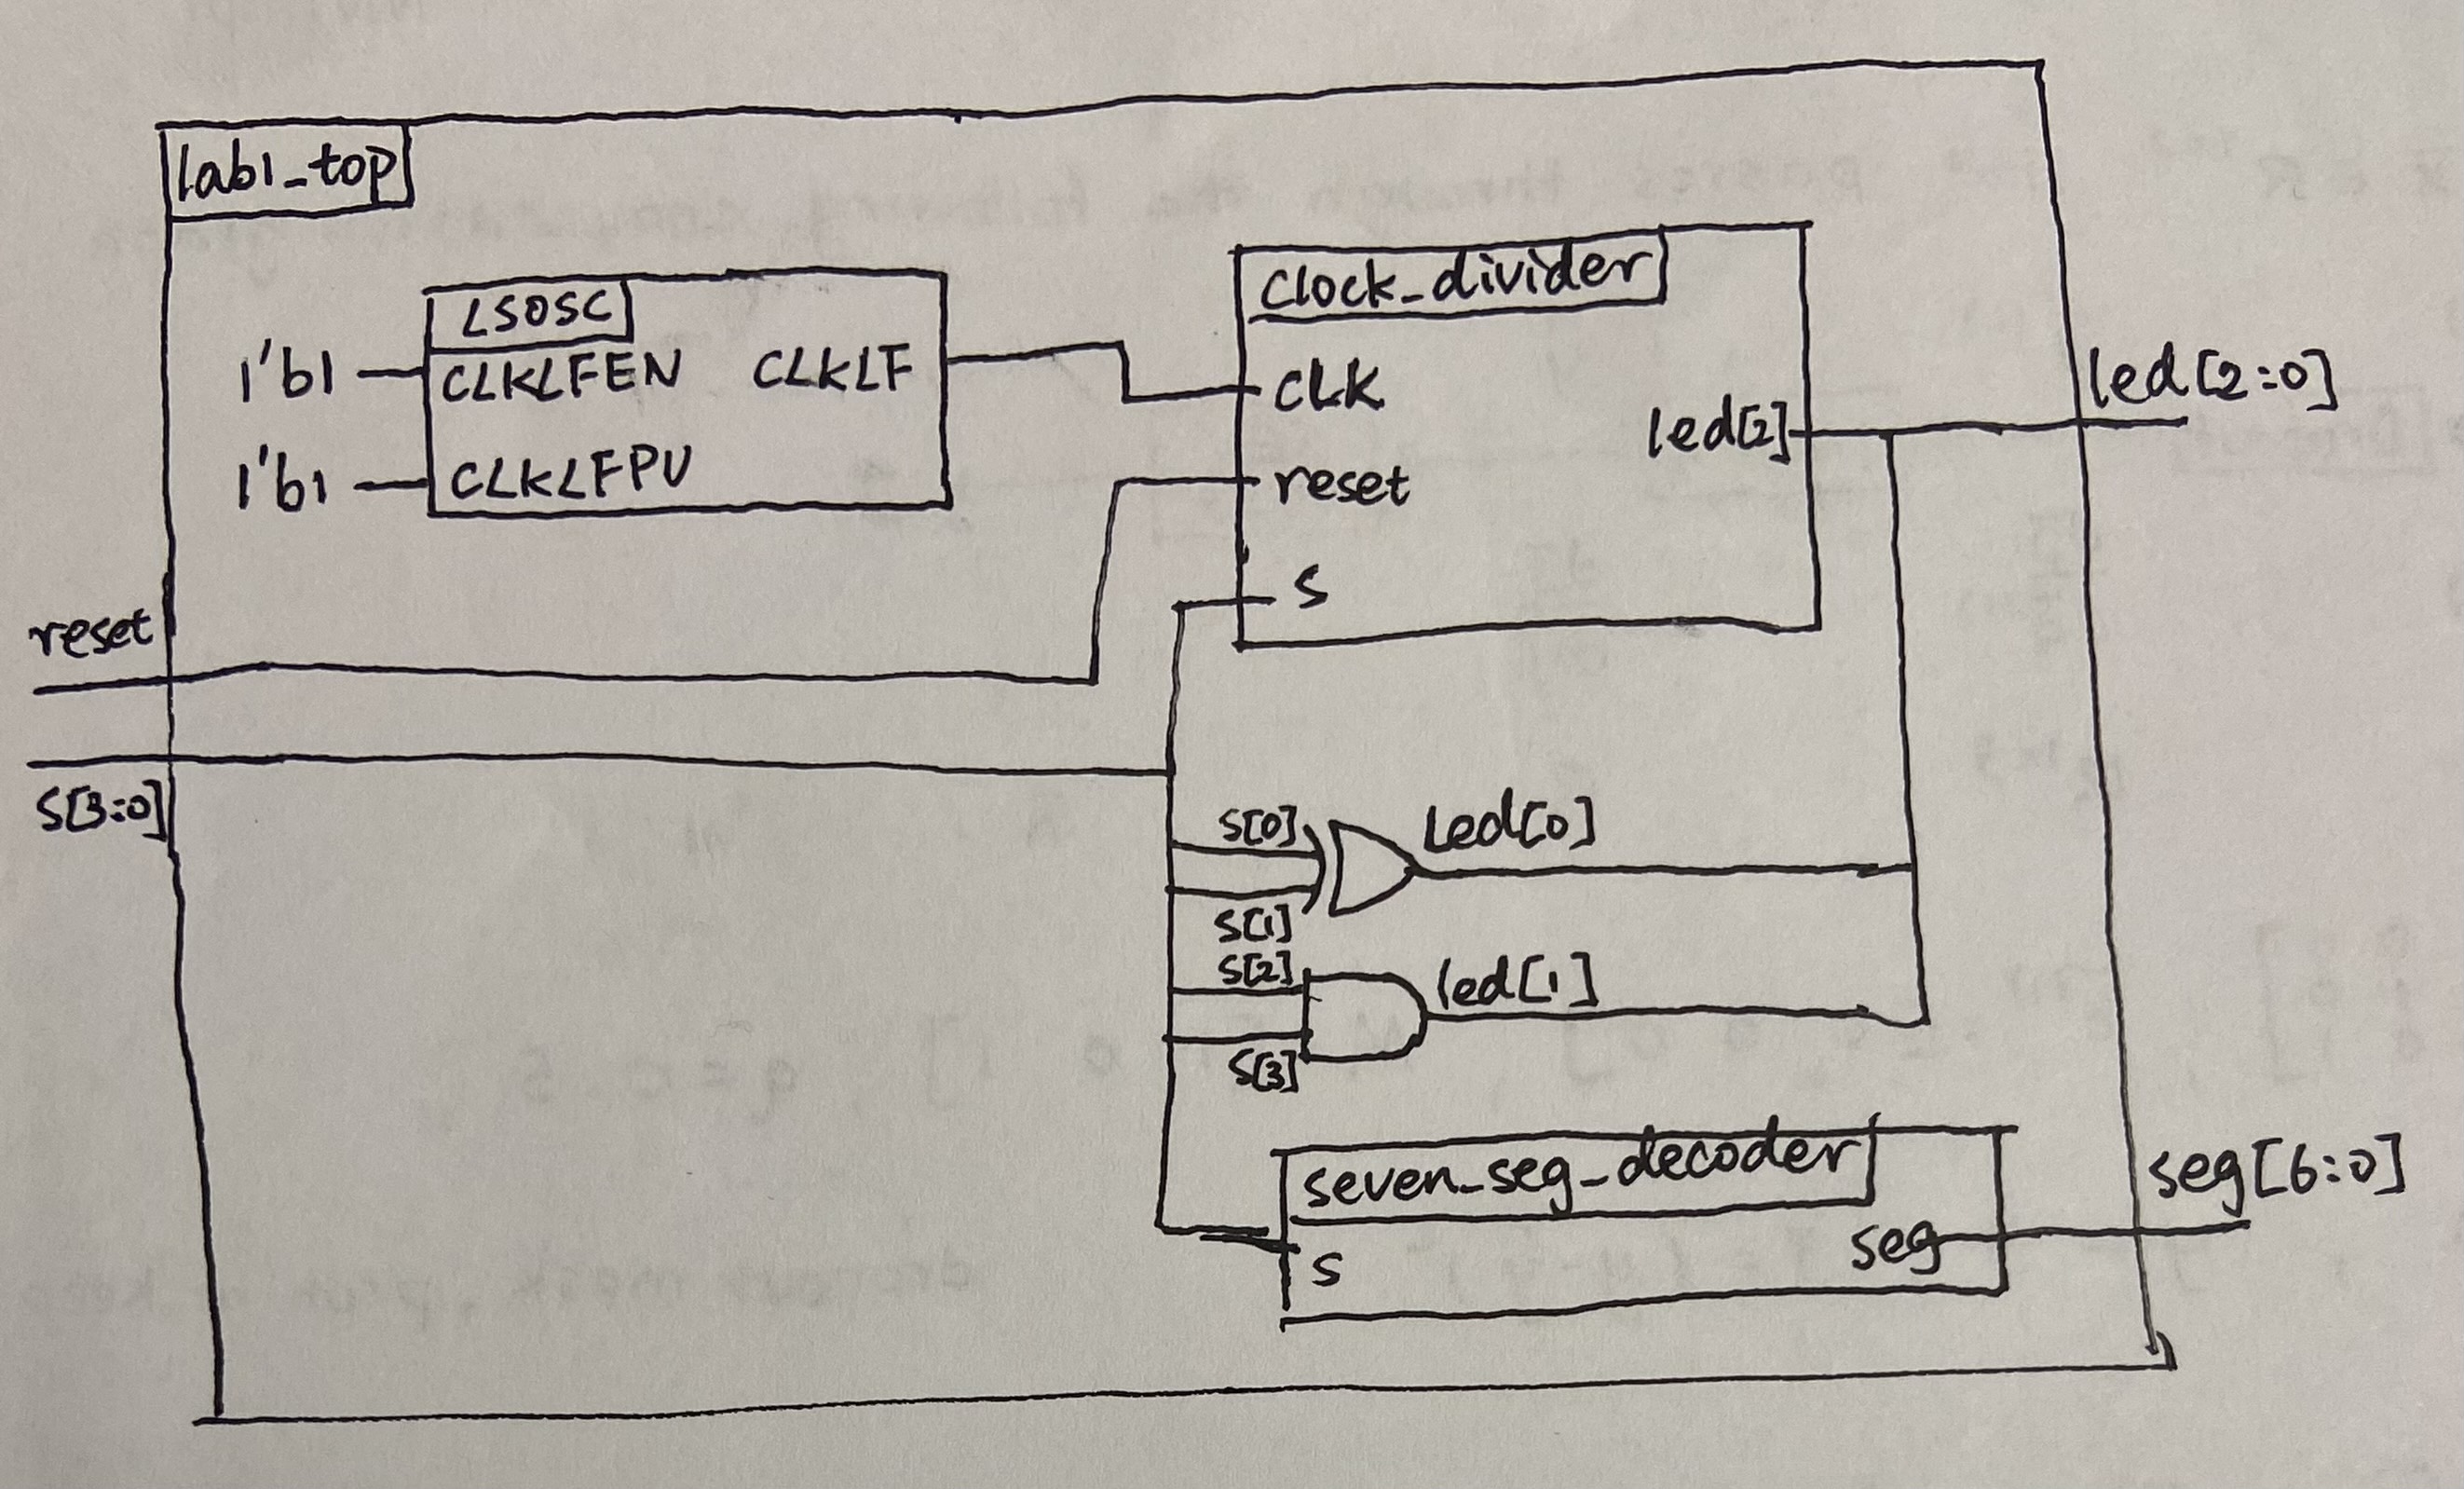 lab1_top
LSOSC
1'b1
CLKLFEN
CLKLF
1'b1
CLKLFPU
clock_divider
CLK
led[2]
reset
S
led[2:0]
reset
S[3:0]
S[0]
Led[0]
S[1]
S[2]
led[1]
S[3]
seven_seg_decoder
S
seg
seg[6:0]